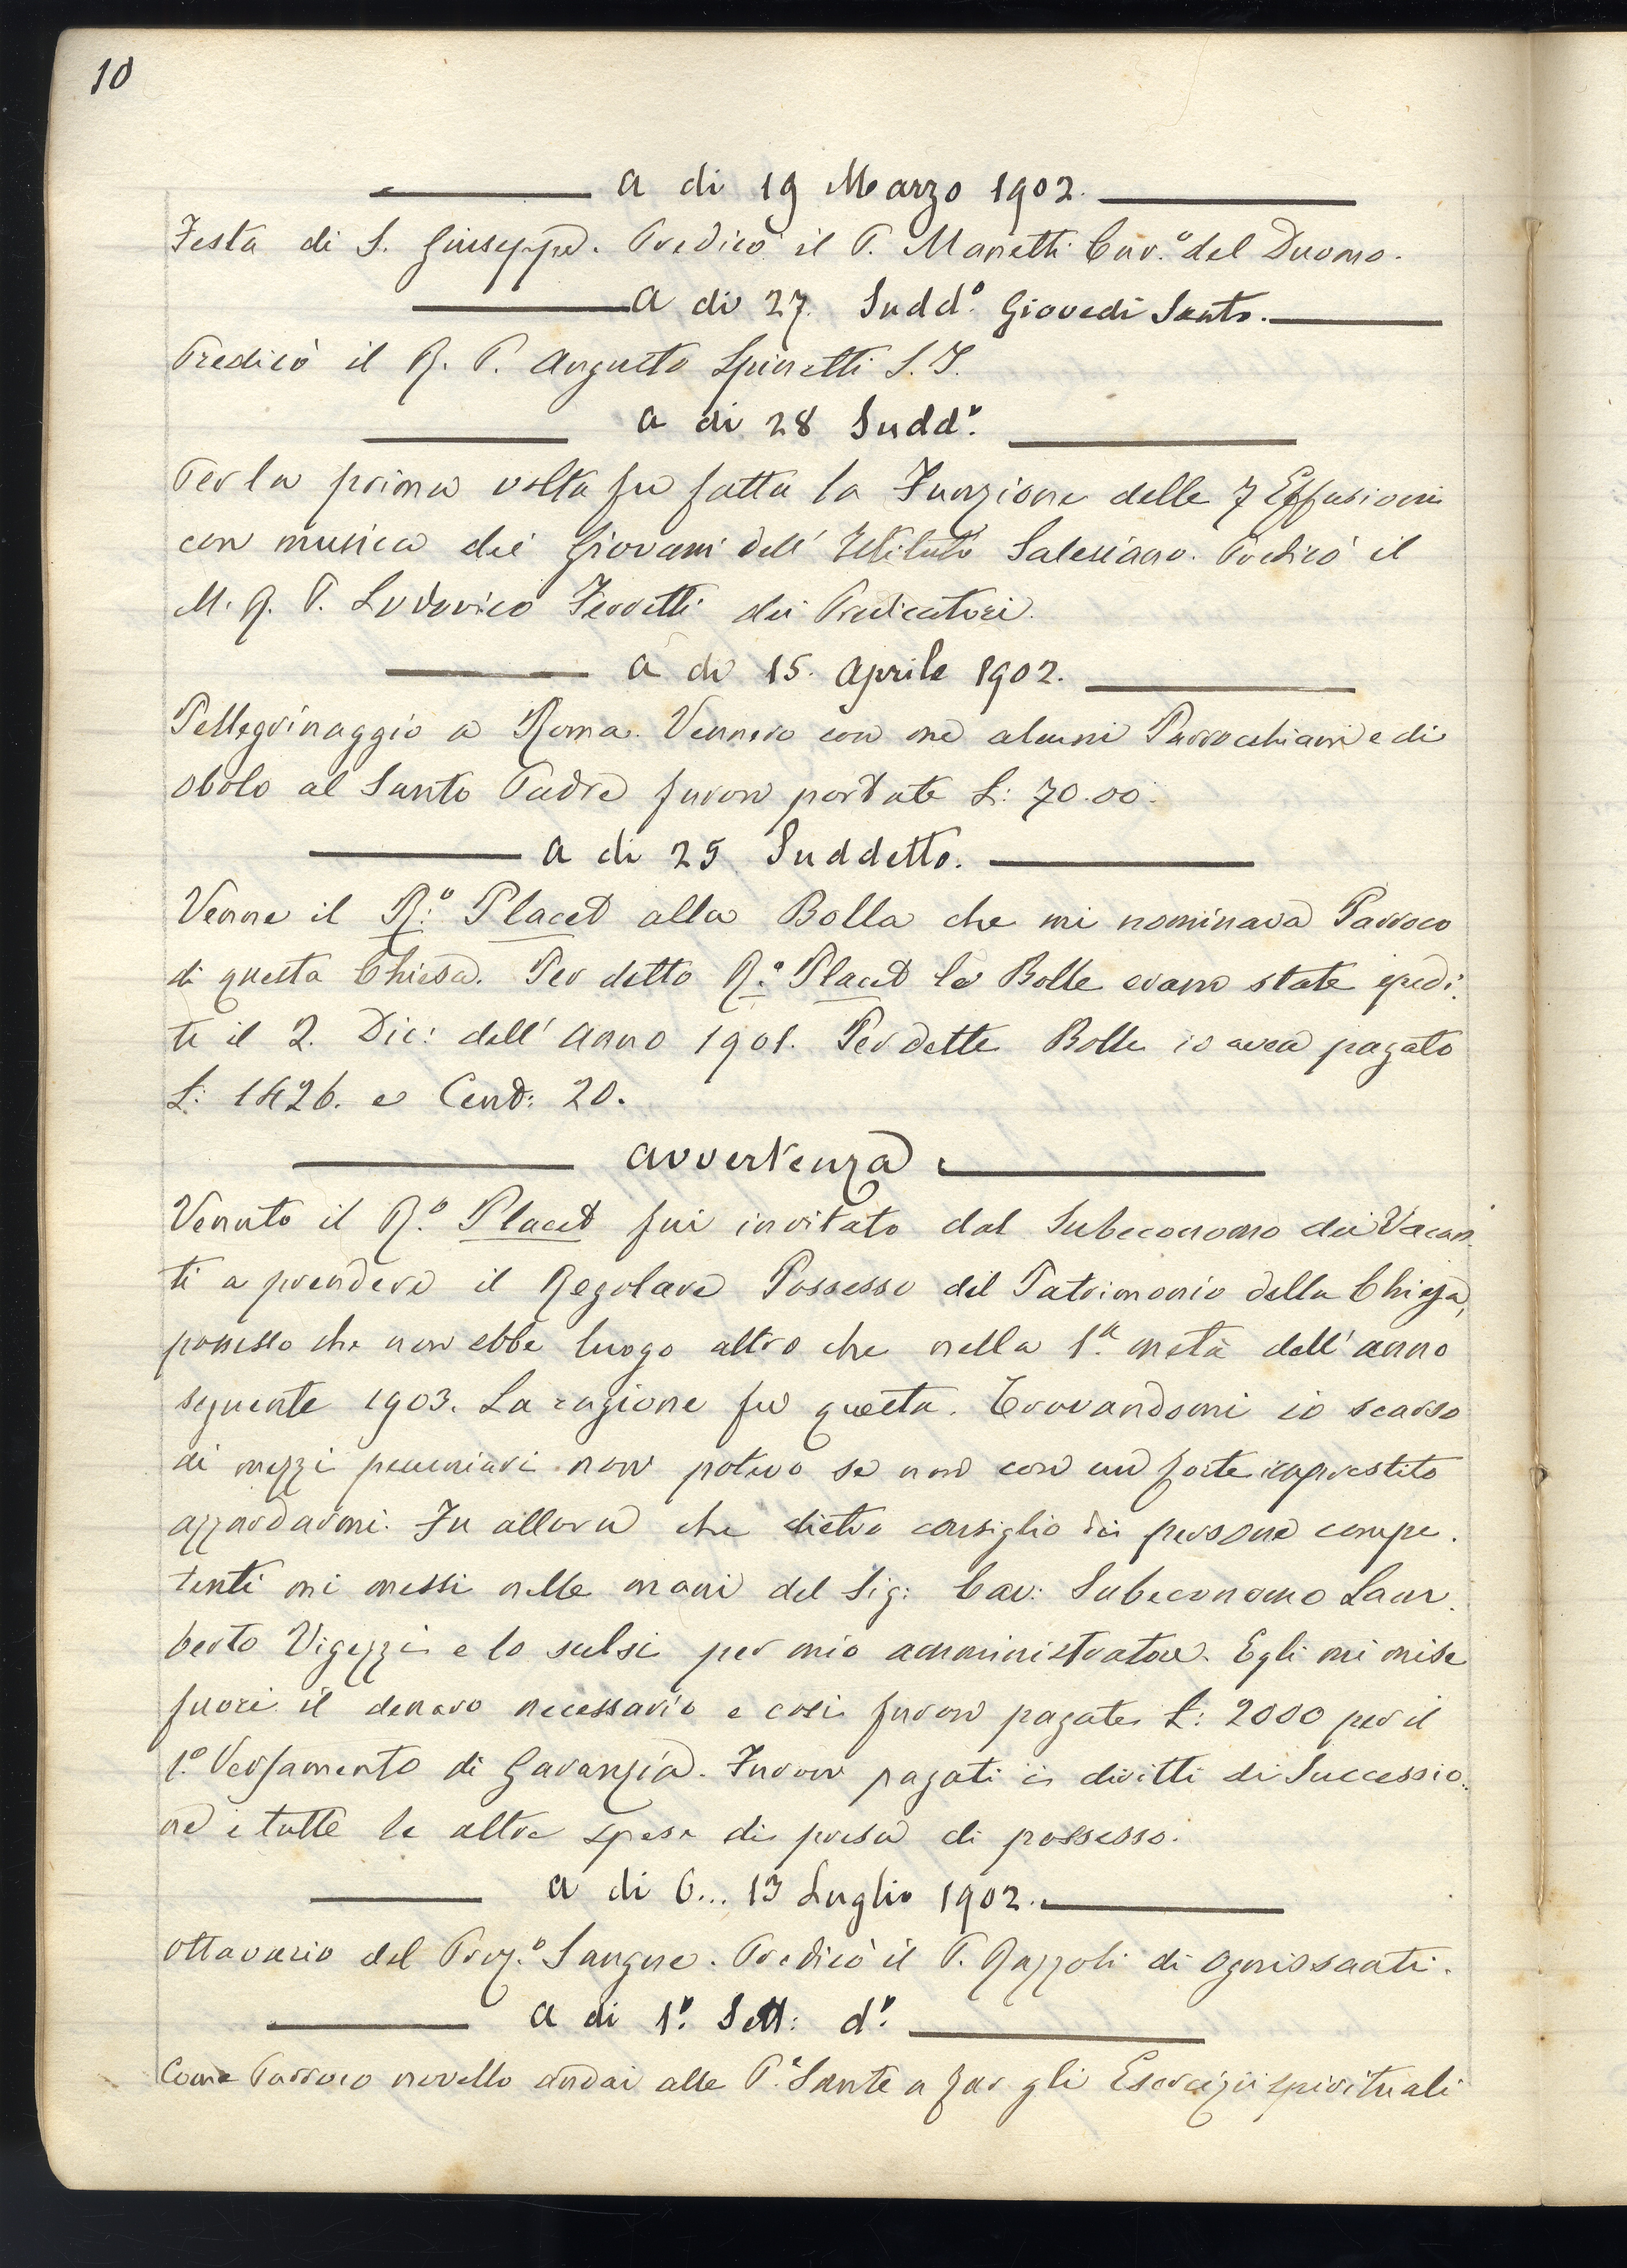 10
a di 19 Marzo 1902.
Festa di S. Giuseppe. Predicò il P. Manetti Cur.º del Duomo.
a di 27. Sudd.º Giovedì Santo.
Predicò il R. P. Augusto Spinetti S. J.
a di 28 Sudd.º
Per la prima volta fu fatta la Funzione delle 7 Effusioni
con musica dei Giovani dell' Istituto Salesiano. Predicò il
M. R. P. Ludovico Ferretti dei Predicatori.
a di 15. Aprile 1902.
Pellegrinaggio a Roma. Vennero con me alcuni Parrocchiani e di
obolo al Santo Padre furon portate L: 70.00.
a di 25 Suddetto.
Venne il R:º Placet alla Bolla che mi nominava Parroco
di questa Chiesa. Per detto R.º Placet le Bolle erano state spedi.
te il 2. Dic: dell' anno 1901. Per dette Bolle io avea pagato
L: 1426. e Cent: 20.
Avvertenza
Venuto il R.º Placet fui invitato dal Subeconomo dei Vacan.
ti a prendere il Regolare Possesso del Patrimonio della Chiesa,
possesso che non ebbe luogo altro che nella 1.ª metà dell' anno
seguente 1903. La ragione fu questa. Trovandomi io scarso
di mezzi pecuniari non potevo se non con un forte imprestito
azzardarmi. Fu allora che dietro consiglio di persone compe.
tenti mi messi nelle mani del Sig: Cav: Subeconomo Lam.
berto Vigezzi e lo sulsi per mio amministratore. Egli mi mise
fuori il denaro necessario e così furon pagate L: 2000 per il
1.º Versamento di Garanzia. Furon pagati i diritti di Successio.
ne e tutte le altre spese di presa di possesso.
a di 6... 13 Luglio 1902.
Ottavario del Prez.º Sangue. Predicò il P. Razzoli di Ognissanti.
a di 1.º Sett: d.º
Come Parroco novello andai alle P.e Sante a far gli Esercizii spirituali